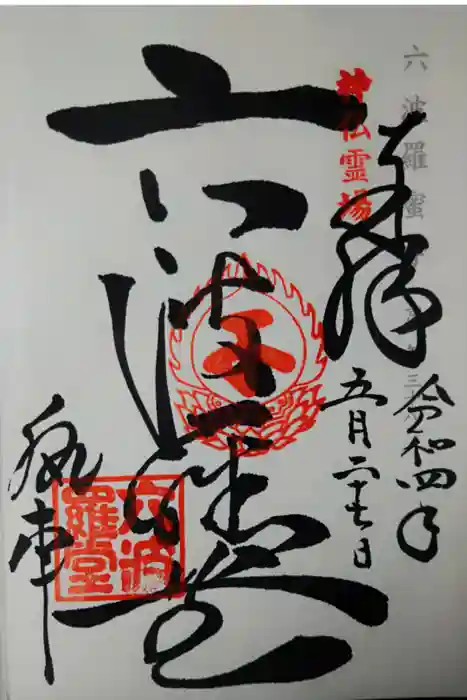 六波羅蜜
奉拝
令和四年
五月二十七日
神仏霊場
六波羅堂
執事
六波羅堂